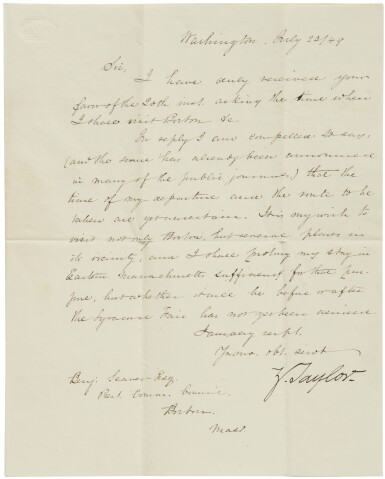 Washington, July 23/49
Sir,
I have duly received your
favor of the 20th inst. asking the time when
I shall visit Boston &c.
In reply I am compelled to say,
(and the same has already been announced
in many of the public journals,) that the
time of my departure and the route to be
taken are yet uncertain. It is my wish to
visit not only Boston, but several places in
its vicinity, and I shall prolong my stay in
Eastern Massachusetts sufficiently for that pur-
pose, but whether it will be before or after
the Syracuse Fair has not yet been decided
I am very respt.
Your obt. servt
Z. Taylor
Benj. Seaver Esq.
Prest. Common Council
Boston
Mass.